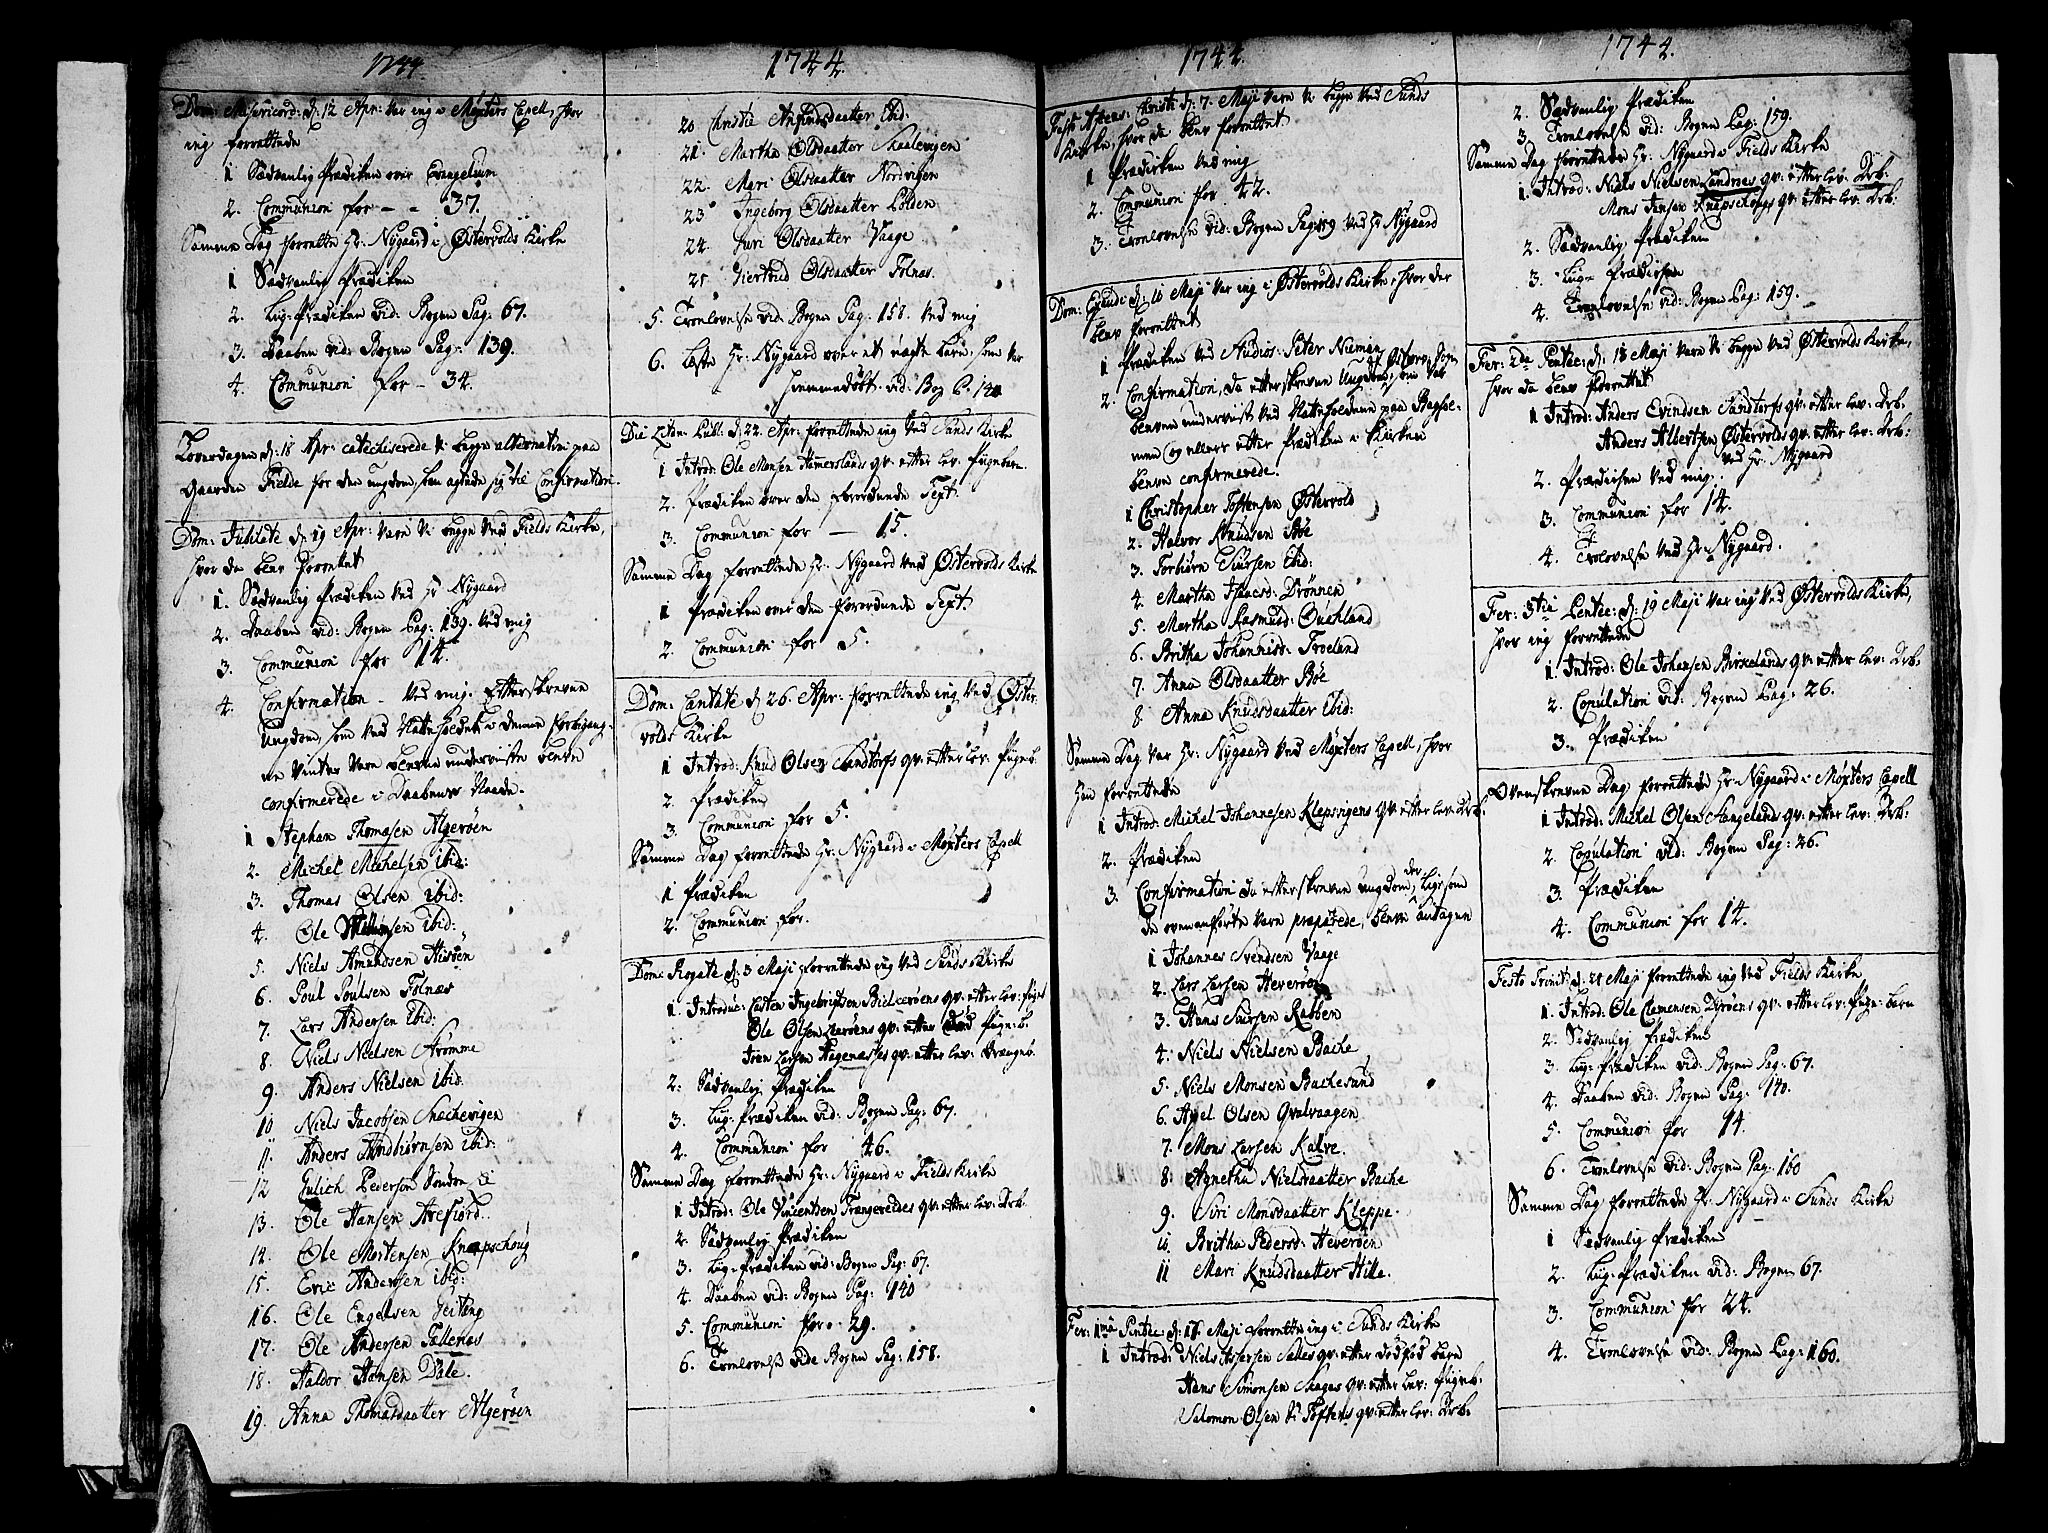 1744.
Dom: Misericord: d: 12 Apr: var ieg i Møxters Capell, hvor
ieg forrettede
1 Sædvanlig Prædiken over Evangelium
2. Communion for - - 37.
Samme Dag forrettede Hr. Nygaard i Østervolds Kirke
1 Sædvanlig Prædiken
2. Lig-Prædiken vid: Bogen Pag: 67.
3. Daaben vid: Bogen Pag: 139.
4. Communion for - 34.
Løverdagen d: 18 Apr: catechiserede vi begge alternatim paa
Gaarden Fielde for den ungdom, som agtede sig til Confirmation.
Dom: Jubilate d: 19 Apr: vare vi begge ved Fields Kirke,
hvor da blev forrettet
1. Sædvanlig Prædiken ved Hr Nygaard
2. Daaben vid: Bogen Pag: 139. ved mig
3. Communion for 14.
4. Confirmation - ved mig. Efterskrevne
Ungdom, som ved Natteholdet i denne forbigang-
ne Vinter vare blevne underviiste bleve
confirmerede i Daabens Naade.
1 Stephan Thomasen Algerøen
2. Michel Michelsen ibid:
3. Thomas Olsen ibid:
4. Ole ibid:
5. Niels Amundsen Hisøen
6. Poul Poulsen Folnæs
7. Lars Andersen ibid:
8. Niels Nielsen Strømme
9. Anders Nielsen ibid.
10 Niels Jacobsen Snachevigen
11. Anders ibid:
12 Gulich Pederson
13. Ole Hansen Avefiord.
14. Ole Mortensen Knapschoug
15. Eric Andersen ibid:
16. Ole Engelsen Geiting
17. Ole Andersen Tellenæs
18. Haldor Hansen Dale.
19. Anna Thomasdaatter Algerøen
1744
20 Christi Anfindsdaatter ibid.
21. Martha Olsdaatter Skaalevigen
22. Mari Olsdaatter Nordvigen
23 Ingeborg Olsdaatter Lolden
24. Guri Olsdaatter Vaage
25 Giertrud Olsdaatter Folnæs.
5. Troelovelse vid: Bogen Pag: 158. ved mig
6. Læste Hr: Nygaard over et ægte barn, som var
hiemmedøbt vid: Bog P. 140
Die Litan: Publ: d: 22. Apr: forrettede ieg ved Sunds Kirke
1 Introd: Ole Monsen Hamerslands qv: efter lev: Pigebarn.
2. Prædiken over den forordnede Text.
3. Communion for - 15.
Samme Dag forrettede Hr: Nygaard ved Østervolds Kirke
1 Prædiken over den forordnede Text.
2. Communion for 5.
Dom: Cantate d 26. Apr: forrettede ieg ved Øster-
volds Kirke
1 Introd: Knud Olsen Sandtorfs qv: efter lev: Pigeb.
2. Prædiken
3. Communion for 5.
Samme Dag forrettede Hr: Nygaard i Møxters Capell
1 Prædiken
2. Communion for.
Dom: Rogate d: 3 Maji forrettede ieg ved Sunds Kirke
1 Introduc: Casten Ingebrigtsen Bielkerøens qv: efter lev: Pigeb
Ole Olsen Lerøens qv: efter Død Pigeb.
Iver Larsen Hagenæsses qv: efter lev: Drængeb.
2. Sædvanlig Prædiken
3. Lig-Prædiken vid: Bogen Pag: 67.
4. Communion for 46.
Samme Dag forrettede Hr: Nygaard i Fields Kirke
1 Introd: Ole Vincentsen Trangereides qv: efter lev: Drb.
2. Sædvanlig Prædiken
3. Lig-Prædiken vid: Bogen Pag: 67.
4. Daaben vid: Bogen Pag: 140
5. Communion for 29.
6. Troelovelse vide Bogen Pag: 158.
1744.
Festo Ascens: Christi d: 7. Maji vare vi begge ved Sunds
Kirke, hvor da blev forrettet
1 Prædiken ved mig
2. Communion for 42.
3. Troelovelse vid: Bogen Pag:159 ved Hr Nygaard
Dom: Exaudi d: 10 Maji var ieg i Østervolds Kirke, hvor der
blev forrettet
1 Prædiken ved Studios: Peter Nieman
2. Confirmation, da efterskrevne Ungdom, som var
blevne underviist ved Natteholdene paa Baghol-
men og ellers efter Prædiken i Kirken
bleve confirmerede.
1 Christopher Tostensen Østervold
2. Halvor Knudsen Bøe
3. Torbiørn Siursen Ebid:
4. Martha Isaacsd: Drønnen
5. Martha Rasmusd: Buchland
6. Britha Johannisd: Troeland
7. Anna Olsdaatter Bøe
8. Anna Knudsdaatter ibid:
Samme Dag var Hr: Nygaard ved Møxters Capell, hvor
han forrettede
1 Introd: Michel Johannesen Klepsvigens qv: efter lev: Drb.
2. Prædiken
3. Confirmation da efterskrevne Ungdom, der ligesom
de ovenanførte vare præparerede, bleve antagen
1 Johannes Svendsen Vaage
2. Lars Larsen Heverøen
3. Hans Siursen Rabben
4. Niels Nielsen Bache
5. Niels Monsen Bachesund
6. Axel Olsen Qvalvaagen
7. Mons Larsen Kalve.
8. Agnetha Nielsdaatter Bache
9. Siri Monsdaatter Kleppe.
10. Britha Pedersd: Heverøen
11 Mari Knudsdaatter Hille.
Fer: 1ma Pentec: d: 17. Maji forrettede ieg i Sunds Kirke
1 Introd: Niels Assersen Salles qv: efter dødfød barn
Hans Simonsen Skages qv: efter lev: Pigeb:
Salomon Olsen Tofters qv: efter lev: Drb:
1744.
2. Sædvanlig Prædiken
3. Troelovelse vid: Bogen Pag: 159.
Samme Dag forrettede Hr: Nygaard i Fields Kirke
1. Introd: Niels Nielsen Landraas qv: efter lev: Drb:
Mons Jansen Knapschougs qv: efter lev: Drb:
2. Sædvanlig Prædiken
3. Lig-Prædiken
4. Troelovelse vid: Bogen Pag: 159.
Fer: 2da Pentec: d: 18 Maji vare vi begge ved Østervolds Kirke,
hvor da blev forrettet
1 Introd: Anders Evindsen Sandtorfs qv: efter lev: Drb.
Anders Albertsen Østervolds qv: efter lev: Drb:
ved Hr: Nygaard
2. Prædiken ved mig.
3. Communion for 14.
4. Troelovelse ved Hr: Nygaard.
Fer: 3tia Pentec: d: 19 Maji var ieg ved Østervolds Kirke,
hvor ieg forrettede
1. Introd: Ole Johansen Birkelands qv: efter lev: Drb.
2. Copulation vid: Bogen Pag: 26.
3. Prædiken
Ovenskrevne Dag forrettede Hr: Nygaard i Møxters Capell
1 Introd: Michel Olsen Sangelands qv: efter lev: Drb:
2. Copulation vid: Bogen Pag: 26.
3. Prædiken
4. Communion for 14.
Festo Trinit: d: 24 Maji forrettede ieg ved Fields Kirke
1. Introd: Ole Clemensen Dyrøens qv: efter lev: Pige-barn
2. Sædvanlig Prædiken
3. Lig-Prædiken vid: Bogen Pag: 67.
4. Daaben vid: Bogen Pag: 140.
5. Communion for 14.
6. Troelovelse vid: Bogen Pag: 160
Samme Dag forrettede Hr: Nygaard i Sunds Kirke
1 Sædvanlig Prædiken
2. Lig-Prædiken vid: Bogen 67.
3. Communion for 24.
4. Troelovelse vid: Bogen Pag: 160.